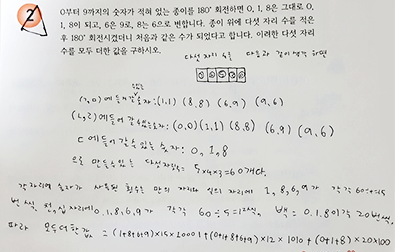 2
0부터 9까지의 숫자가 적혀 있는 종이를 180° 회전하면 0, 1, 8은 그대로 0,
1, 8이 되고, 6은 9로, 9는 6으로 변합니다. 종이 위에 다섯 자리 수를 적은
후 180° 회전시켰더니 처음과 같은 수가 되었다고 합니다. 이러한 다섯 자리
수를 모두 더한 값을 구하시오.
다섯 자리 수를 다음과 같이 생각 하면
에 들어갈 수 있는 숫자: (1,1) (8,8) (6,9) (9,6)
에 들어갈 수 있는 숫자: (0,0) (1,1) (8,8) (6,9) (9,6)
C에 들어갈 수 있는 숫자: 0, 1, 8
으로 만들 수 있는 다섯자리 수는 5×4×3=60개다.
각 자리에 숫자가 사용된 횟수는 만의 자리와 일의 자리에 1, 8, 6, 9가 각각 60÷4=15
번씩, 천, 십 자리에 0,1,8,6,9가 각각 60÷5=12씩, 백은 0.1.8이 각 20번씩,
따라 모두 더한 값 = (1+8+6+9)×15×10001+(0+1+8+6+9)×12×1010+(0+1+8)×20×100